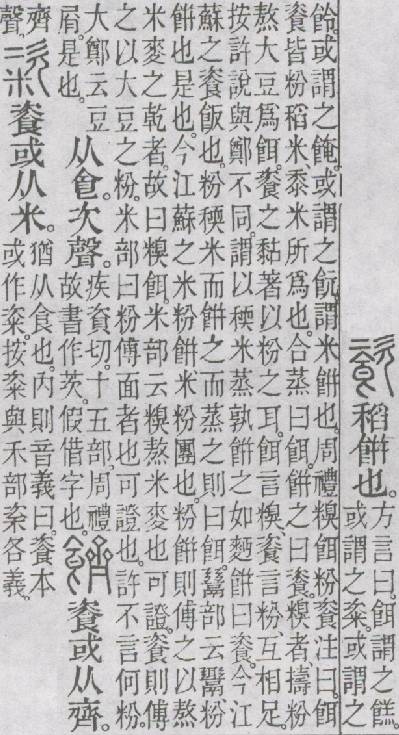 餈 稻餅也。
方言曰。餌謂之餻。
或謂之粢。或謂之
䬳。或謂之餣。或謂之䬧。謂米餅也。周禮糗餌粉餈。注曰。餌
餈皆粉稻米黍米所爲也。合蒸曰餌。餅之曰餈。糗者、擣粉
熬大豆爲餌。餈之黏著以粉之耳。餌言糗、餈言粉、互相足。
按許說與鄭不同。謂以稬米蒸孰餅之如麪餅曰餈。今江
蘇之餈飯也。粉稬米而餅之而蒸之則曰餌。鬻部云䰞粉
餅也是也。今江蘇之米粉餅米粉團也。粉餅則傅之以熬
米麥之乾者。故曰糗餌。米部云糗熬米麥也可證。餈則傅
之以大豆之粉。米部曰粉傅面者也可證也。許不言何粉。
大鄭云豆
屑是也。
从食。次聲。
疾資切。十五部。周禮
故書作茨。假借字也。
餈或从齊。
齊
聲。
餈或从米。
猶从食也。內則音義曰。餈本
或作粢。按粢與禾部秶各義。